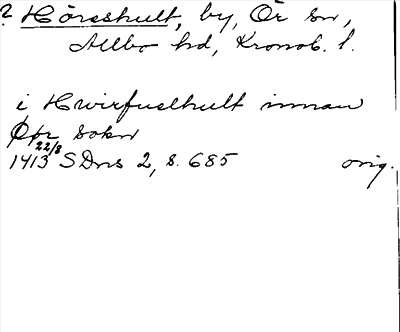 ? Hörsshult, by, Ör sn,
Allbo hd, Kronob. l.
i Hwirfuelhult innan
Øør sokn
1413 22/8 SDns 2, s. 685 orig.